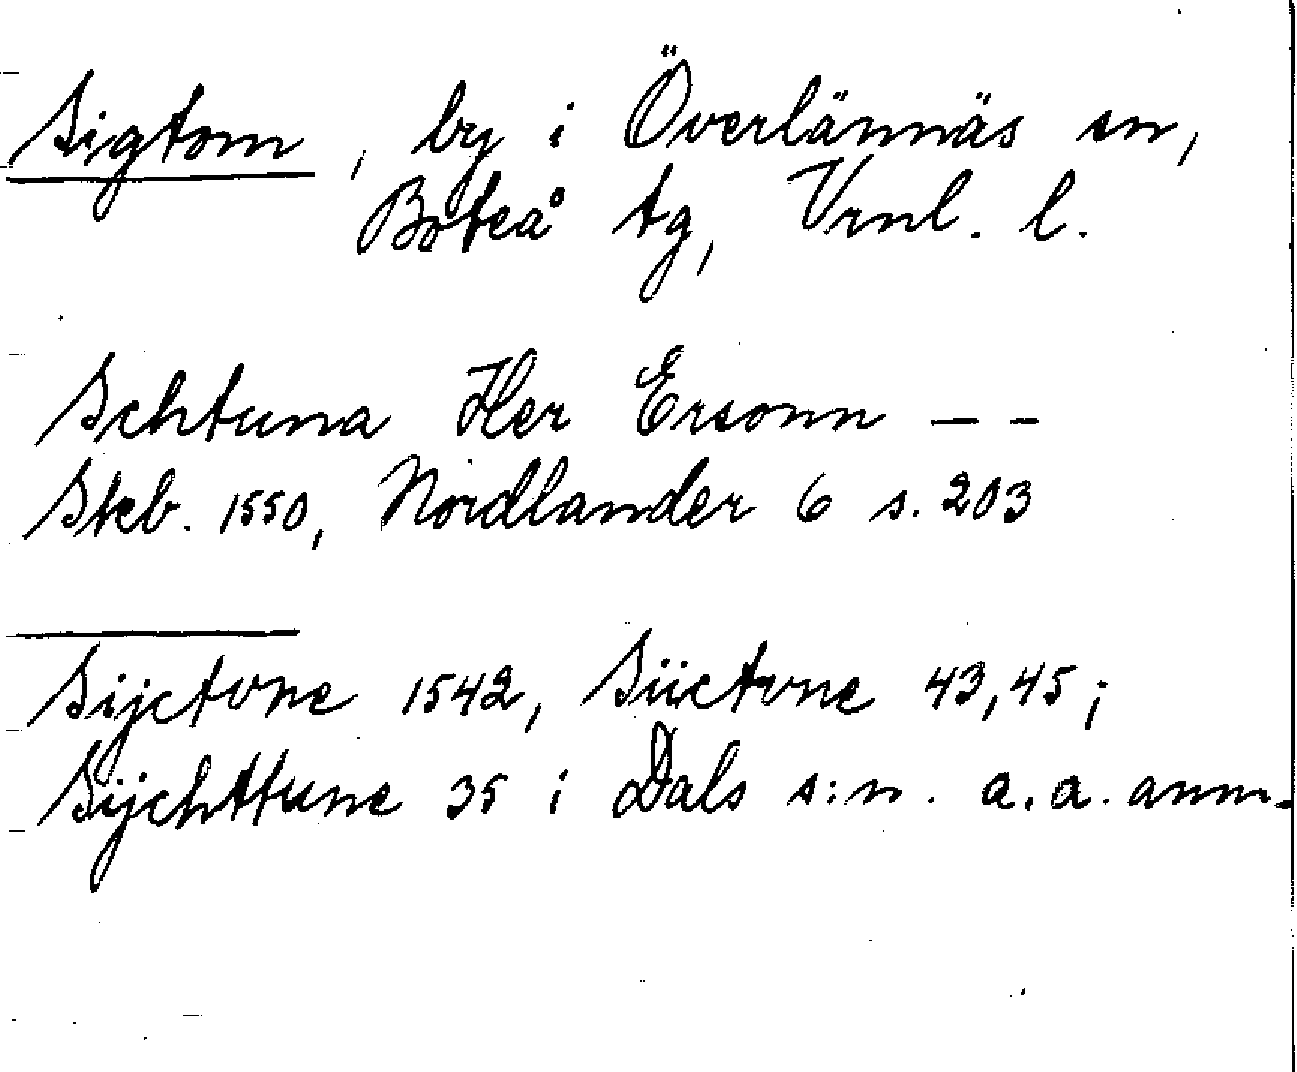 Sigtom, by i Överlännäs sn,
Boteå tg, Vrnl. l.
Schtuna Her Ersonn — -
Skb. 1550, Nordlander 6 s. 203
Sijctvne 1542, Siictvne 43,45;
Sijchttune 35 i Dals s:n. a.a. anm.